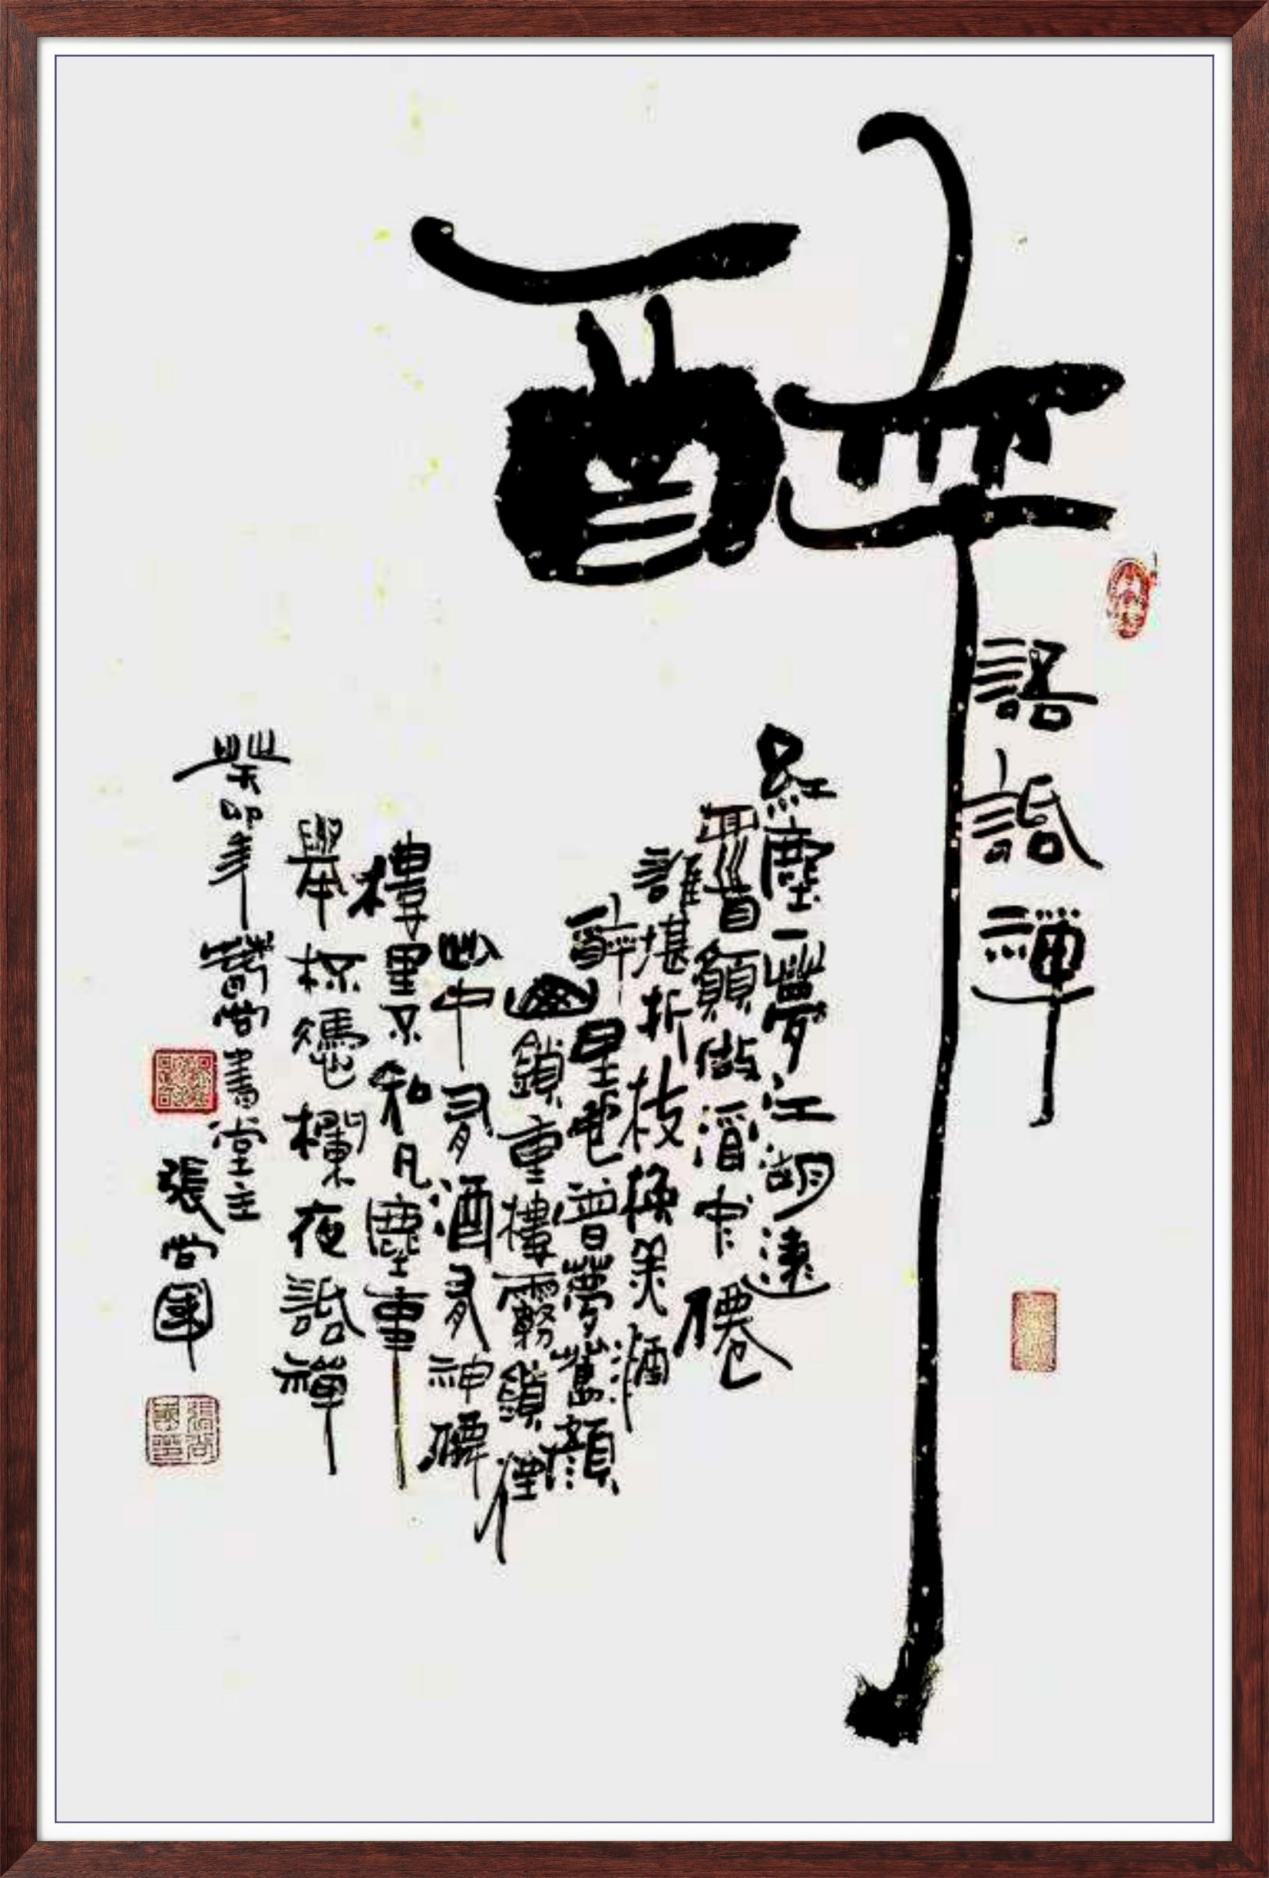 醉
語話禪
紅塵一夢江湖遠
顛做酒中僊
誰堪折枝換美酒
醉里也曾夢舊顏
鎖重樓霧鎖煙
山中有酒有神僊
樓里不和凡塵事
舉杯憑欄夜話禪
癸卯年尚書堂主
張尚國